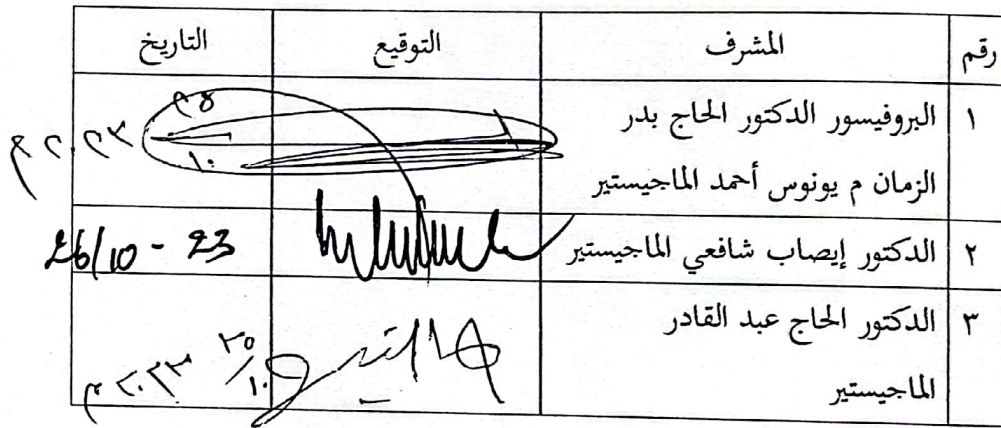 رقم المشرف التوقيع التاريخ
١ البروفيسور الدكتور الحاج بدر
الزمان م يونوس أحمد الماجيستير
٢٨/١٠ ٢٠٢٣ م
٢ الدكتور إيصاب شافعي الماجيستير 26/10 - 23
٣ الدكتور الحاج عبد القادر
الماجيستير
٣٠/١٠ ٢٠٢٣ م